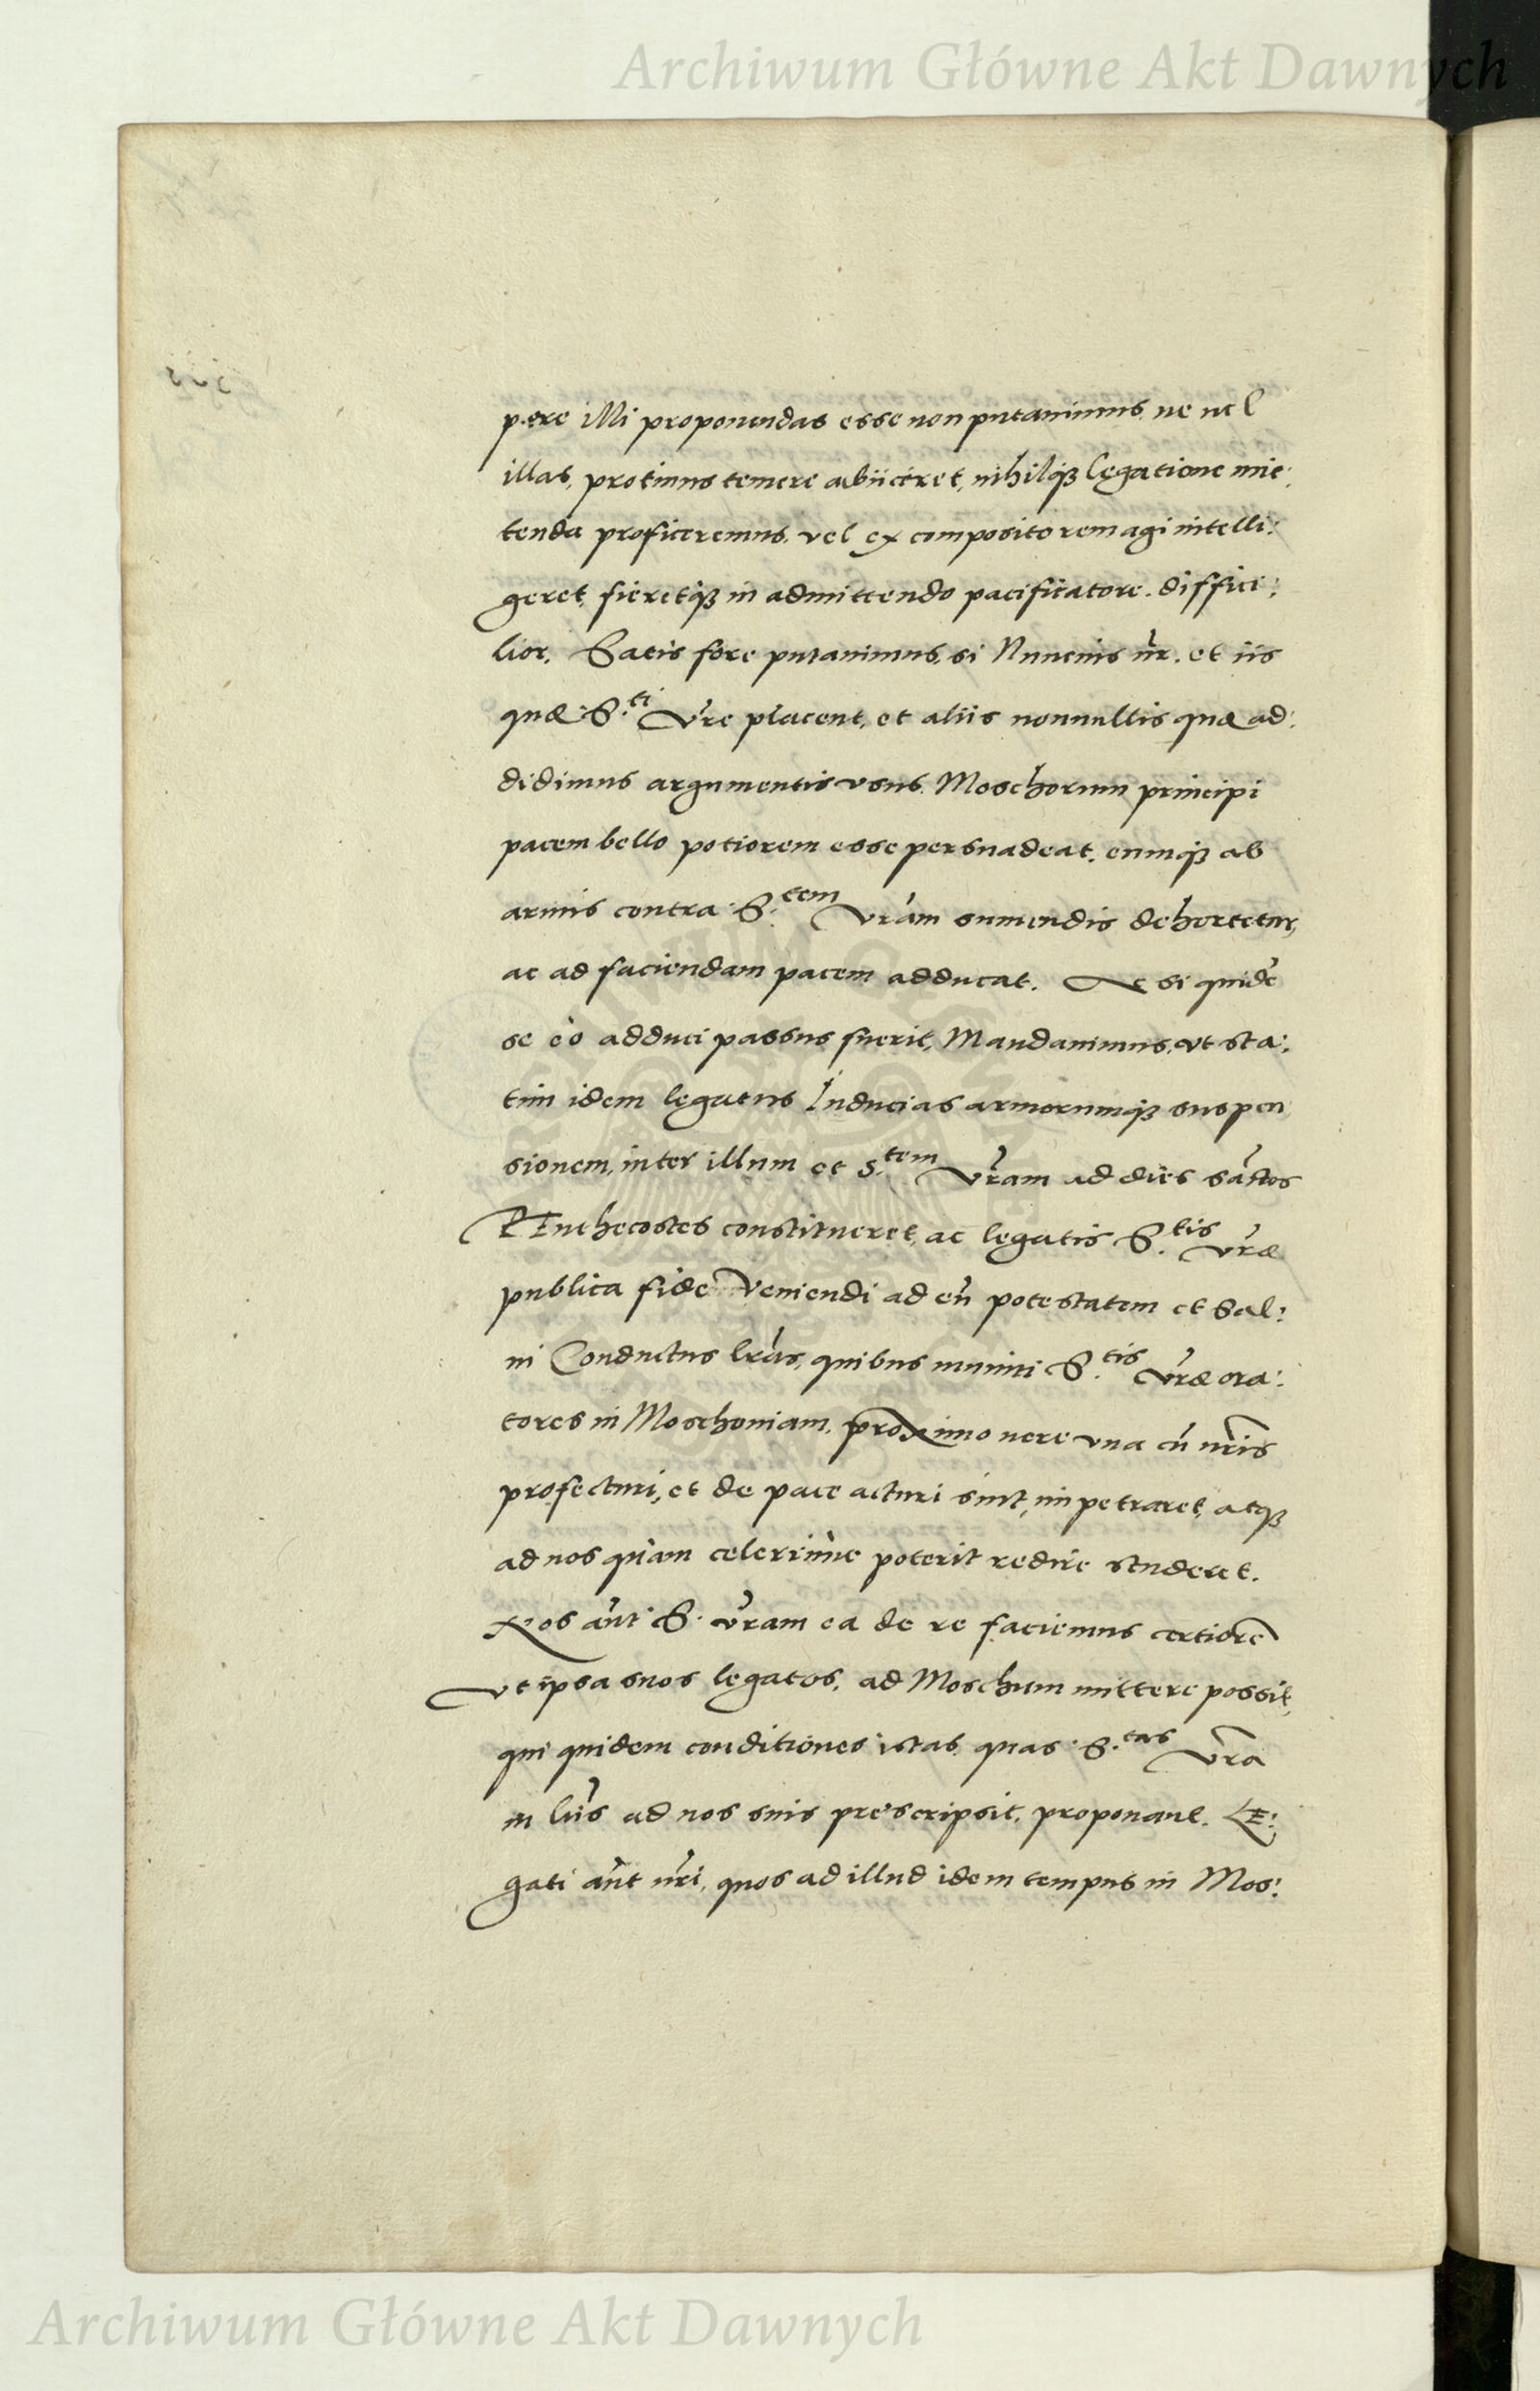 Archiwum Główne Akt Dawnych
pere illi proponendas esse non putauimus, ne uel
illas, protinus temere abiiceret, nihilqꝫ legatione mit:
tenda proficeremus, vel ex composito rem agi intelli:
geret, fieretqꝫ in admittendo pacificatore. diffici:
lior. Satis fore putauimus, si Nuncius nr̃. et iis
quæ S.ti Vr̃e placent, et aliis nonnullis quæ ad:
didimus argumentis vsus, Moschorum principi
pacem bello potiorem esse persuadeat, eumqꝫ ab
armis contra S.tem vrãm sumendis dehortetur,
ac ad faciendam pacem adducat. Ac si quidẽ
se eò adduci passus fuerit, Mandauimus, vt sta:
tim idem legatus Inducias armorumqꝫ suspen
sionem, inter illum et S.tem vr̃am ad dies sãctos
PEnthecostes constitueret, ac legatis S.tis vr̃æ
publica fide Veniendi ad eũ potestatem et Sal:
ui Conductus lrãs, quibus muniti S.tis vr̃æ ora:
tores in Moschouiam, proximo uere vna cũ nr̃is
profecturi, et de pace acturi sint, impetraret, atqꝫ
ad nos quàm celerrime poterit redire studeret.
Nos aũt S. vr̃am ea de re faciemus certiorẽ
vt ipsa suos legatos, ad Moschum mittere possit,
qui quidem conditiones istas, quas S.tas vr̃a
in lr̃is ad nos suis prescripsit, proponant. LE:
gati aũt nr̃i, quos ad illud idem tempus in Mos:
Archiwum Główne Akt Dawnych